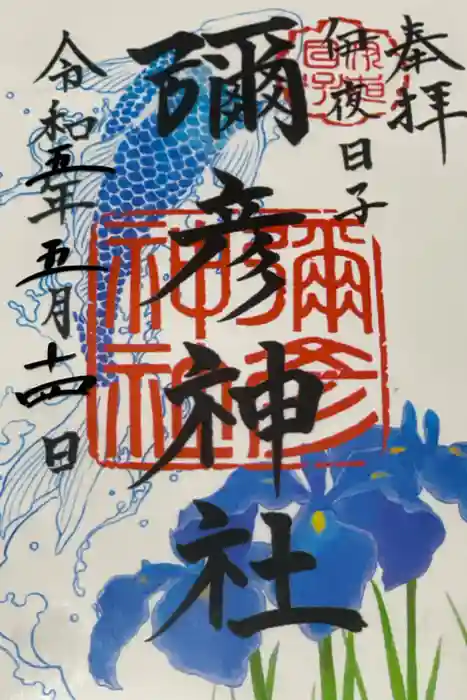 奉拝
伊夜日子
彌彦神社
令和五年五月十四日
彌彦神社